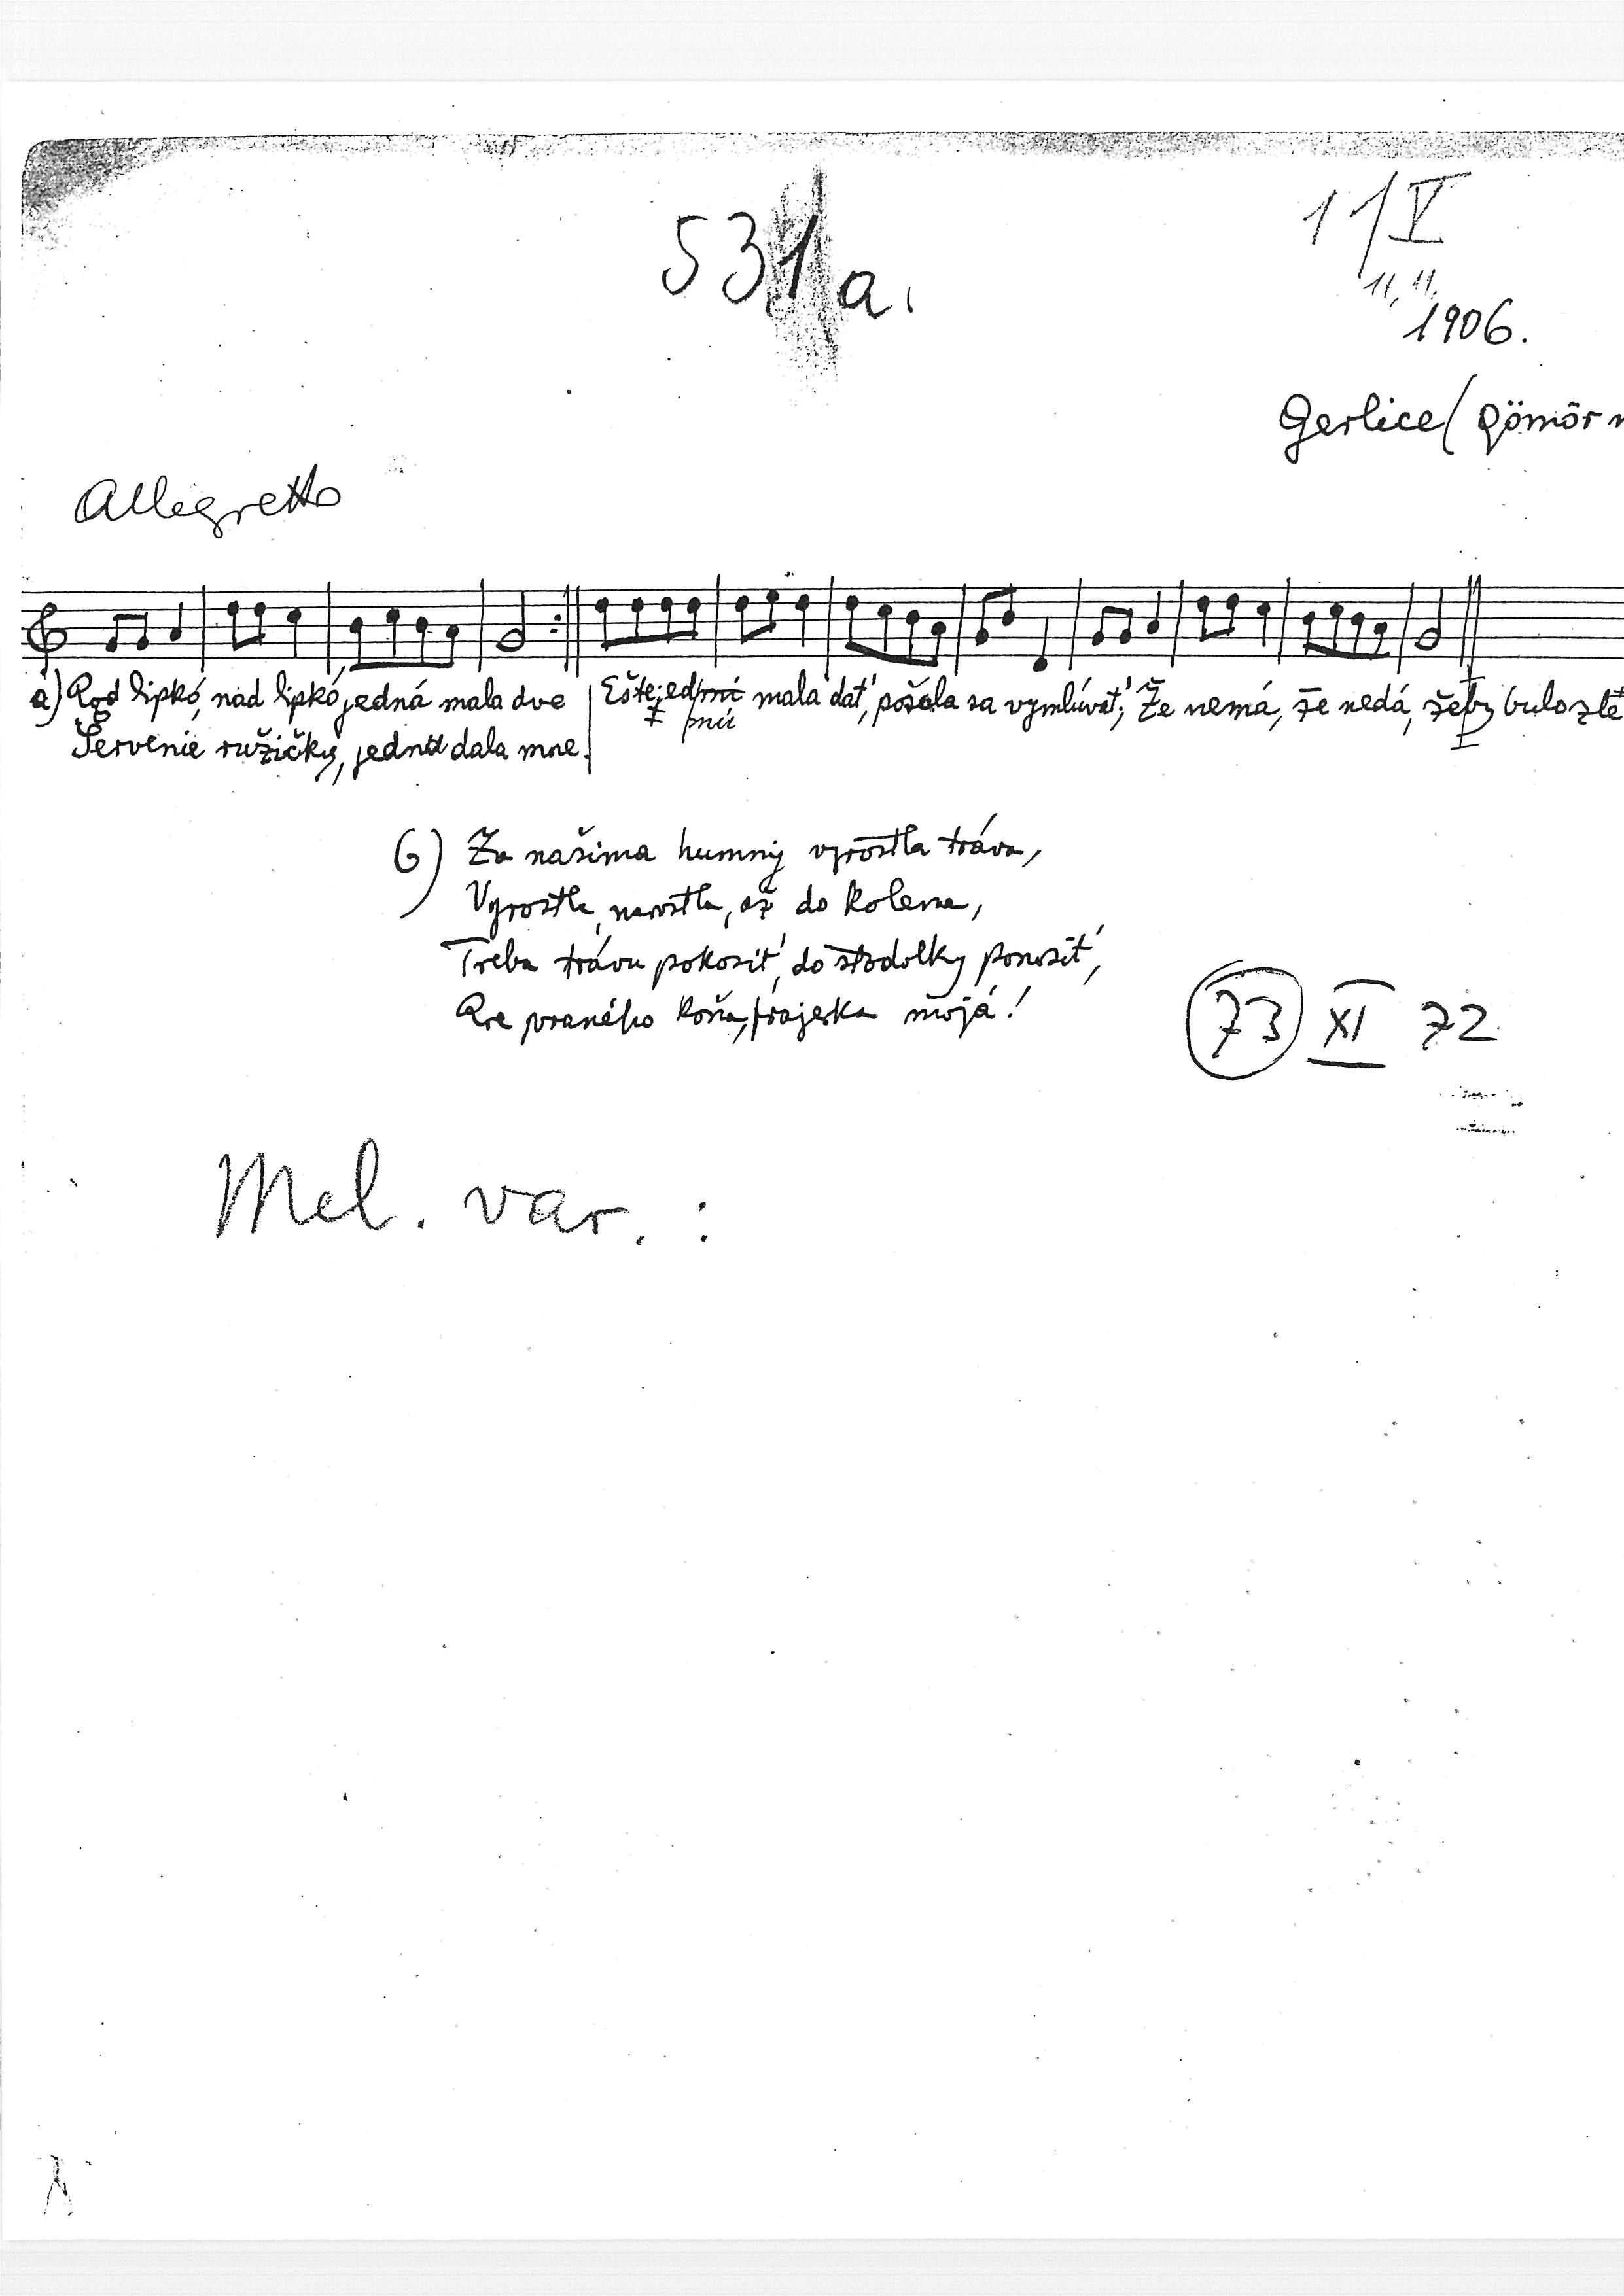 531a.
11/V
11, 11.
1906.
Gerlice (Gömör m
Allegretto
a) Pod lipkó, nad lipkó, jedná mala dve | Ešte jed mala dať, pošala sa vymlúvať; Že nemá, že nedá, žeby bulo zle
pnú
Šervenie ružičky, jednu dala mne.
6) Za našima humny vyrostla tráva,
Vyrostla, narostla, až do kolena,
Treba trávu pokosiť, do stodolky ponosiť,
Pre vraného koňa, frajerka mojá!
73 XI 72
Mel. var. :